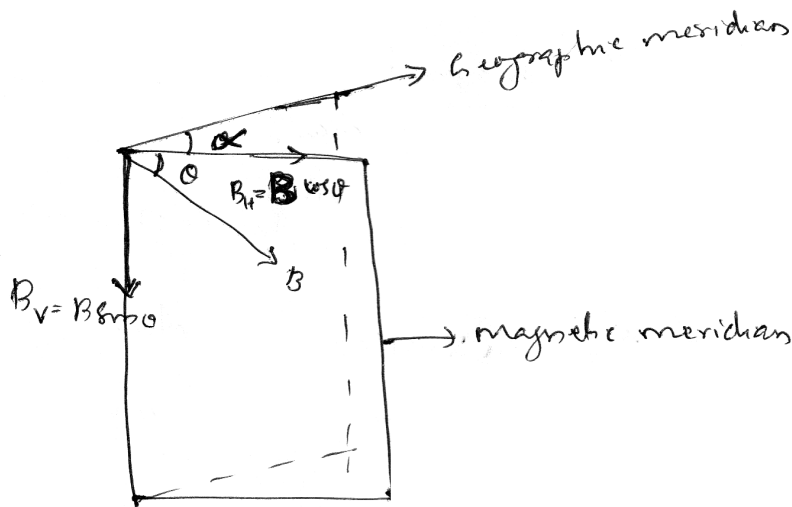 Geographic meridian
α
θ
B_H = B cosθ
B
B_V = B sinθ
magnetic meridian